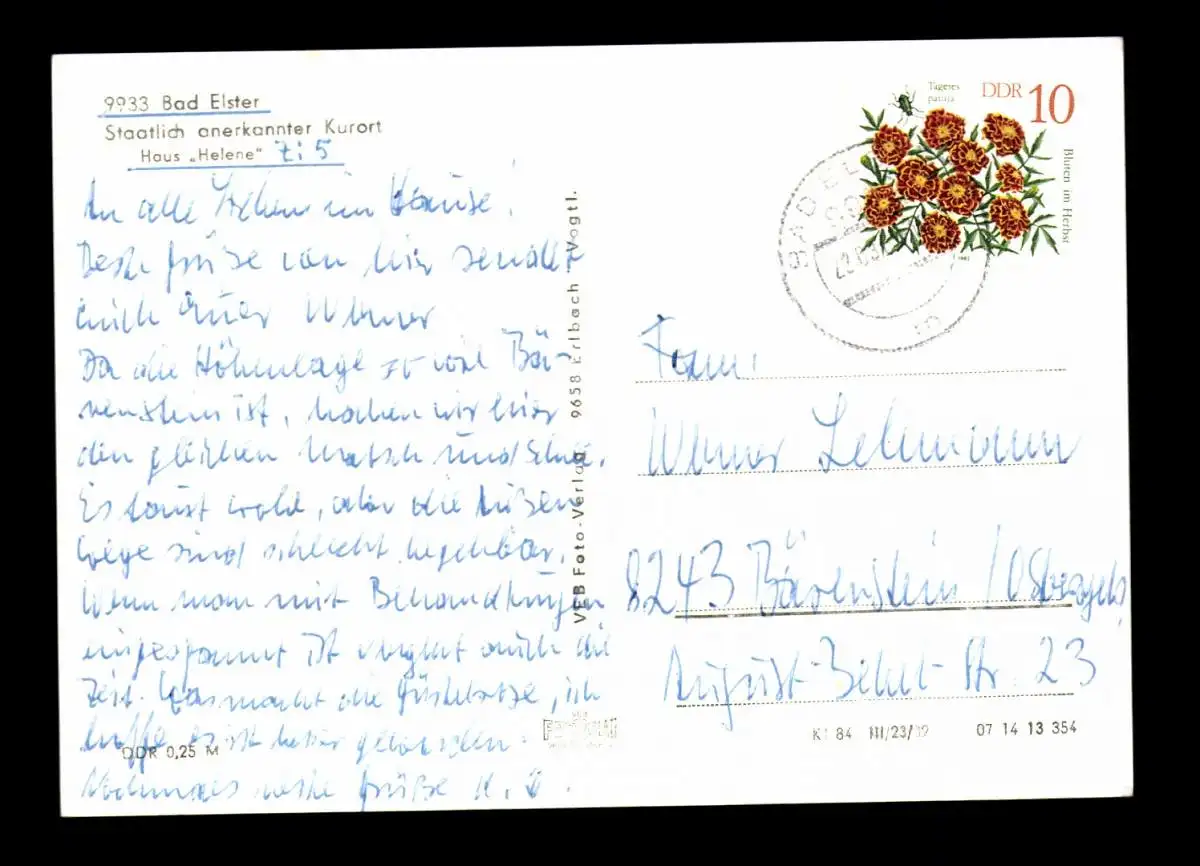 9933 Bad Elster
Staatlich anerkannter Kurort
Haus „Helene" Zi 5
An alle Lieben im Hause!
Beste Grüße von hier sendet
euch euer Werner
Da die Höhenlage so wie Bä-
renstein ist, haben wir hier
den gleichen Matsch und Schnee.
Es taut wohl, aber die Außen
wege sind schlecht begehbar.
Wenn man mit Behandlungen
eingespannt ist vergeht auch die
Zeit. Was macht die, ich
hoffe es ist besser geworden.
Nochmals beste Grüße
DDR 0,25 M
VEB Foto-Verlag 9658 Erlbach Vogtl.
Tagetes
patula
DDR 10
Blüten im Herbst
1982
BAD EL
Fam.
Werner Lehmann
8243 Bärenstein / Osterzgeb.
August-Bebel-Str. 23
K1 84 III/23/82 07 14 13 354